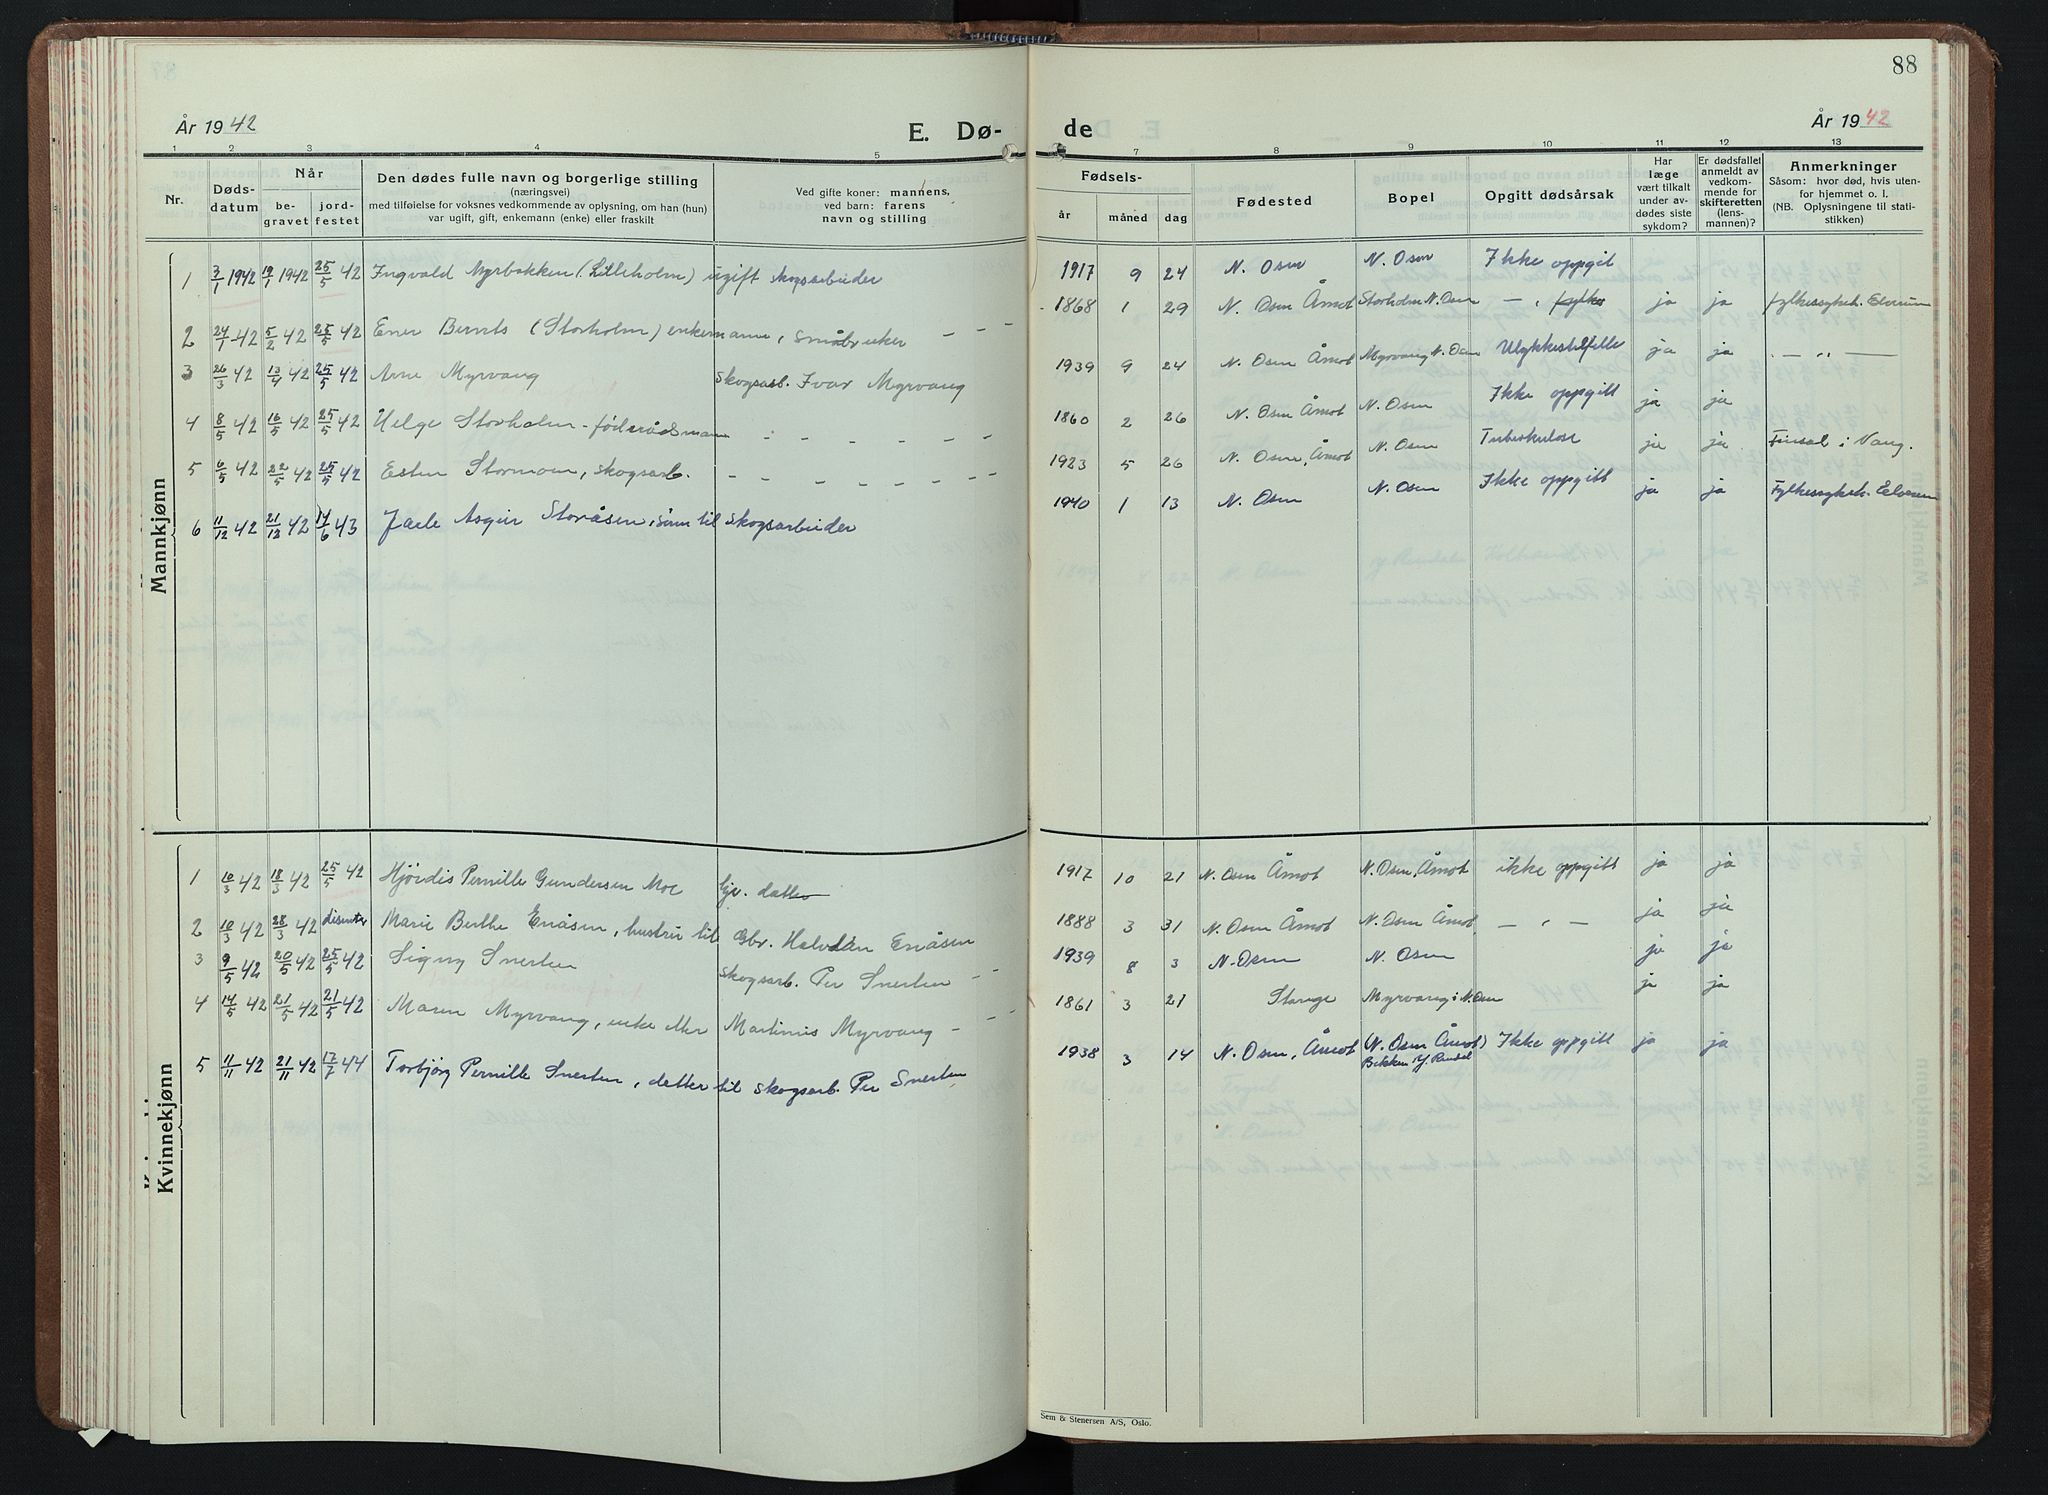 88
År 1942
E. Dø-
de
År 1942
1 2 3 4 5 7 8 9 10 11 12 13
Nr.
Døds-
datum
Når
be-
gravet
jord-
festet
Den dødes fulle navn og borgerlige stilling
(næringsvei)
med tilføielse for voksnes vedkommende av oplysning, om han (hun)
var ugift, gift, enkemann (enke) eller fraskilt
Ved gifte koner: mannens,
ved barn: farens
navn og stilling
Fødsels-
år måned dag
Fødested
Bopel
Opgitt dødsårsak
Har
læge
vært tilkalt
under av-
dødes siste
sykdom?
Er dødsfallet
anmeldt av
vedkom-
mende for
skifteretten
(lens-
mannen)?
Anmerkninger
Såsom: hvor død, hvis uten-
for hjemmet o. l.
(NB. Oplysningene til stati-
stikken)
Mannkjønn
1 3/1 1942 19/1 1942 25/5 42 Ingvald Myrbakken (Lilleholm) ugift skogsarbeider 1917 9 24 N. Osen N. Osen Ikke oppgit
2 24/1 42 5/2 42 25/5 42 Ener Bernts (Storholm) enkemann, småbruker - - - 1868 1 29 N. Osen Åmot Storholm N. Osen — " — ja ja fylkessykeh. Elverum
3 26/3 42 13/4 42 25/5 42 Arne Myrvang skogsarb. Ivar Myrvang 1939 9 24 N. Osen Åmot Myrvang N. Osen Ulykkestilfelle ja ja — " —
4 8/5 42 16/5 42 25/5 42 Helge Storholm - föderådsmann - - - - - - 1860 2 26 N. Osen Åmot N. Osen Ikke oppgitt ja ja
5 6/5 42 22/5 42 25/5 42 Esten Stormoen, skogsarb. - - - - - - - 1923 5 26 N. Osen, Åmot N. Osen Tuberkulose ja ja Finsal i Vang.
6 11/12 42 21/12 42 14/6 43 Jarle Asgeir Storåsen, sønn til skogsarbeider 1940 1 13 N. Osen N. Osen Ikke oppgitt ja ja Fylkessykeh. Elverum
Kvinnekjønn
1 10/3 42 18/3 42 25/5 42 Hjördis Pernille Gundersen Moe Gbr. datter 1917 10 21 N. Osen Åmot N. Osen, Åmot ikke oppgitt ja ja
2 10/3 42 28/3 42 disenter Marie Berthe Enåsen, hustru til Gbr. Halvdan Enåsen 1888 3 31 N. Osen Åmot N. Osen Åmot — " — ja ja
3 9/5 42 20/5 42 25/5 42 Signy Snerten skogsarb. Per Snerten - - 1939 8 3 N. Osen N. Osen ja ja
4 14/5 42 21/5 42 21/5 42 Maren Myrvang, enke etter Martinus Myrvang - - - 1861 3 21 Stange Myrvang i N. Osen ja ja
5 11/11 42 21/11 42 17/7 44 Torbjørg Pernille Snerten, datter til skogsarb. Per Snerten 1938 3 14 N. Osen, Åmot (N. Osen Åmot) Ikke oppgitt ja ja
Bekken i Y. Rendal
Sem & Stenersen A/S, Oslo.